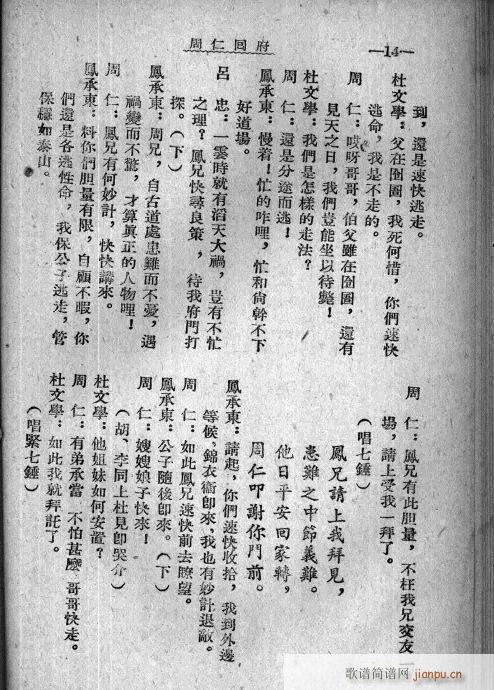 周仁回府
—14—
到，還是速快逃走。
杜文學：父在囹圄，我死何惜，你們速快
逃命，我是不走的。
周　仁：哎呀哥哥，伯父雖在囹圄，還有
見天之日，我們豈能坐以待斃！
杜文學：我們是怎樣的走法？
周　仁：還是分途而逃！
鳳承東：慢着！忙的咋哩，忙和尙幹不下
好道場。
呂　忠：一雲時就有滔天大禍，豈有不忙
之理？鳳兄快尋良策，待我府門打
探。（下）
鳳承東：周兄，自古道處患難而不憂，遇
禍變而不驚，才算眞正的人物哩！
周　仁：鳳兄有何妙計，快快講來。
鳳承東：料你們胆量有限，自顧不暇，你
們還是各逃性命，我保公子逃走，管
保穩如泰山。
周　仁：鳳兄有此胆量，不枉我兄交友一
塲，請上受我一拜了。
（唱緊七錘）
鳳兄請上我拜見，
患難之中節義難。
他日平安回家轉，
周仁叩謝你門前。
鳳承東：請起，你們速快收拾，我到外邊
等候，錦衣衞卽來，我也有妙計退敵。
周　仁：如此鳳兄速快前去瞭望。
鳳承東：公子隨後卽來。（下）
周　仁：嫂嫂娘子快來！
（胡、李同上杜見卽哭介）
杜文學：他姐妹如何安置？
周　仁：有弟承當　不怕甚麽　哥哥快走。
杜文學：如此我就拜託了。
（唱緊七錘）
歌谱简谱网
jianpu.cn